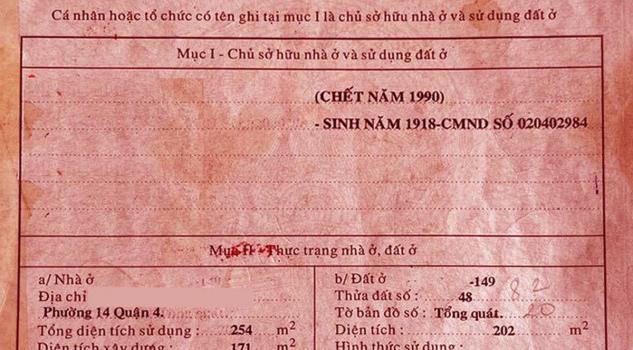 Cá nhân hoặc tổ chức có tên ghi tại mục I là chủ sở hữu nhà ở và sử dụng đất ở
Mục I - Chủ sở hữu nhà ở và sử dụng đất ở
(CHẾT NĂM 1990)
- SINH NĂM 1918-CMND SỐ 020402984
Mục II - Thực trạng nhà ở, đất ở
a/ Nhà ở
Địa chỉ
Phường 14 Quận 4.
Tổng diện tích sử dụng : 254 m2
Diện tích xây dựng : 171 m2
b/ Đất ở -149
Thửa đất số : 48 82
Tờ bản đồ số : Tổng quát. 20
Diện tích : 202 m2
Hình thức sử dụng :